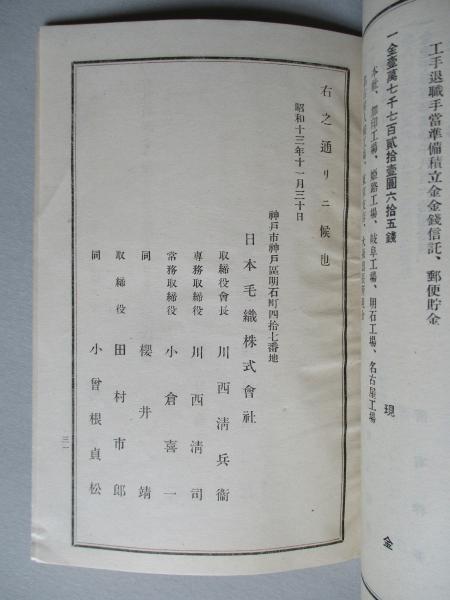 工手退職手當準備積立金金錢信託、郵便貯金
一金壹萬七千七百貳拾壹圓六拾五錢
現
金
本社、加印工場、姫路工場、岐阜工場、明石工場、名古屋工場
右之通リニ候也
昭和十三年十一月三十日
神戸市神戸區明石町四拾七番地
日本毛織株式會社
取締役會長 川西清兵衞
專務取締役 川西清司
常務取締役 小倉喜一
同 櫻井靖
取締役 田村市郎
同 小曾根貞松
三一